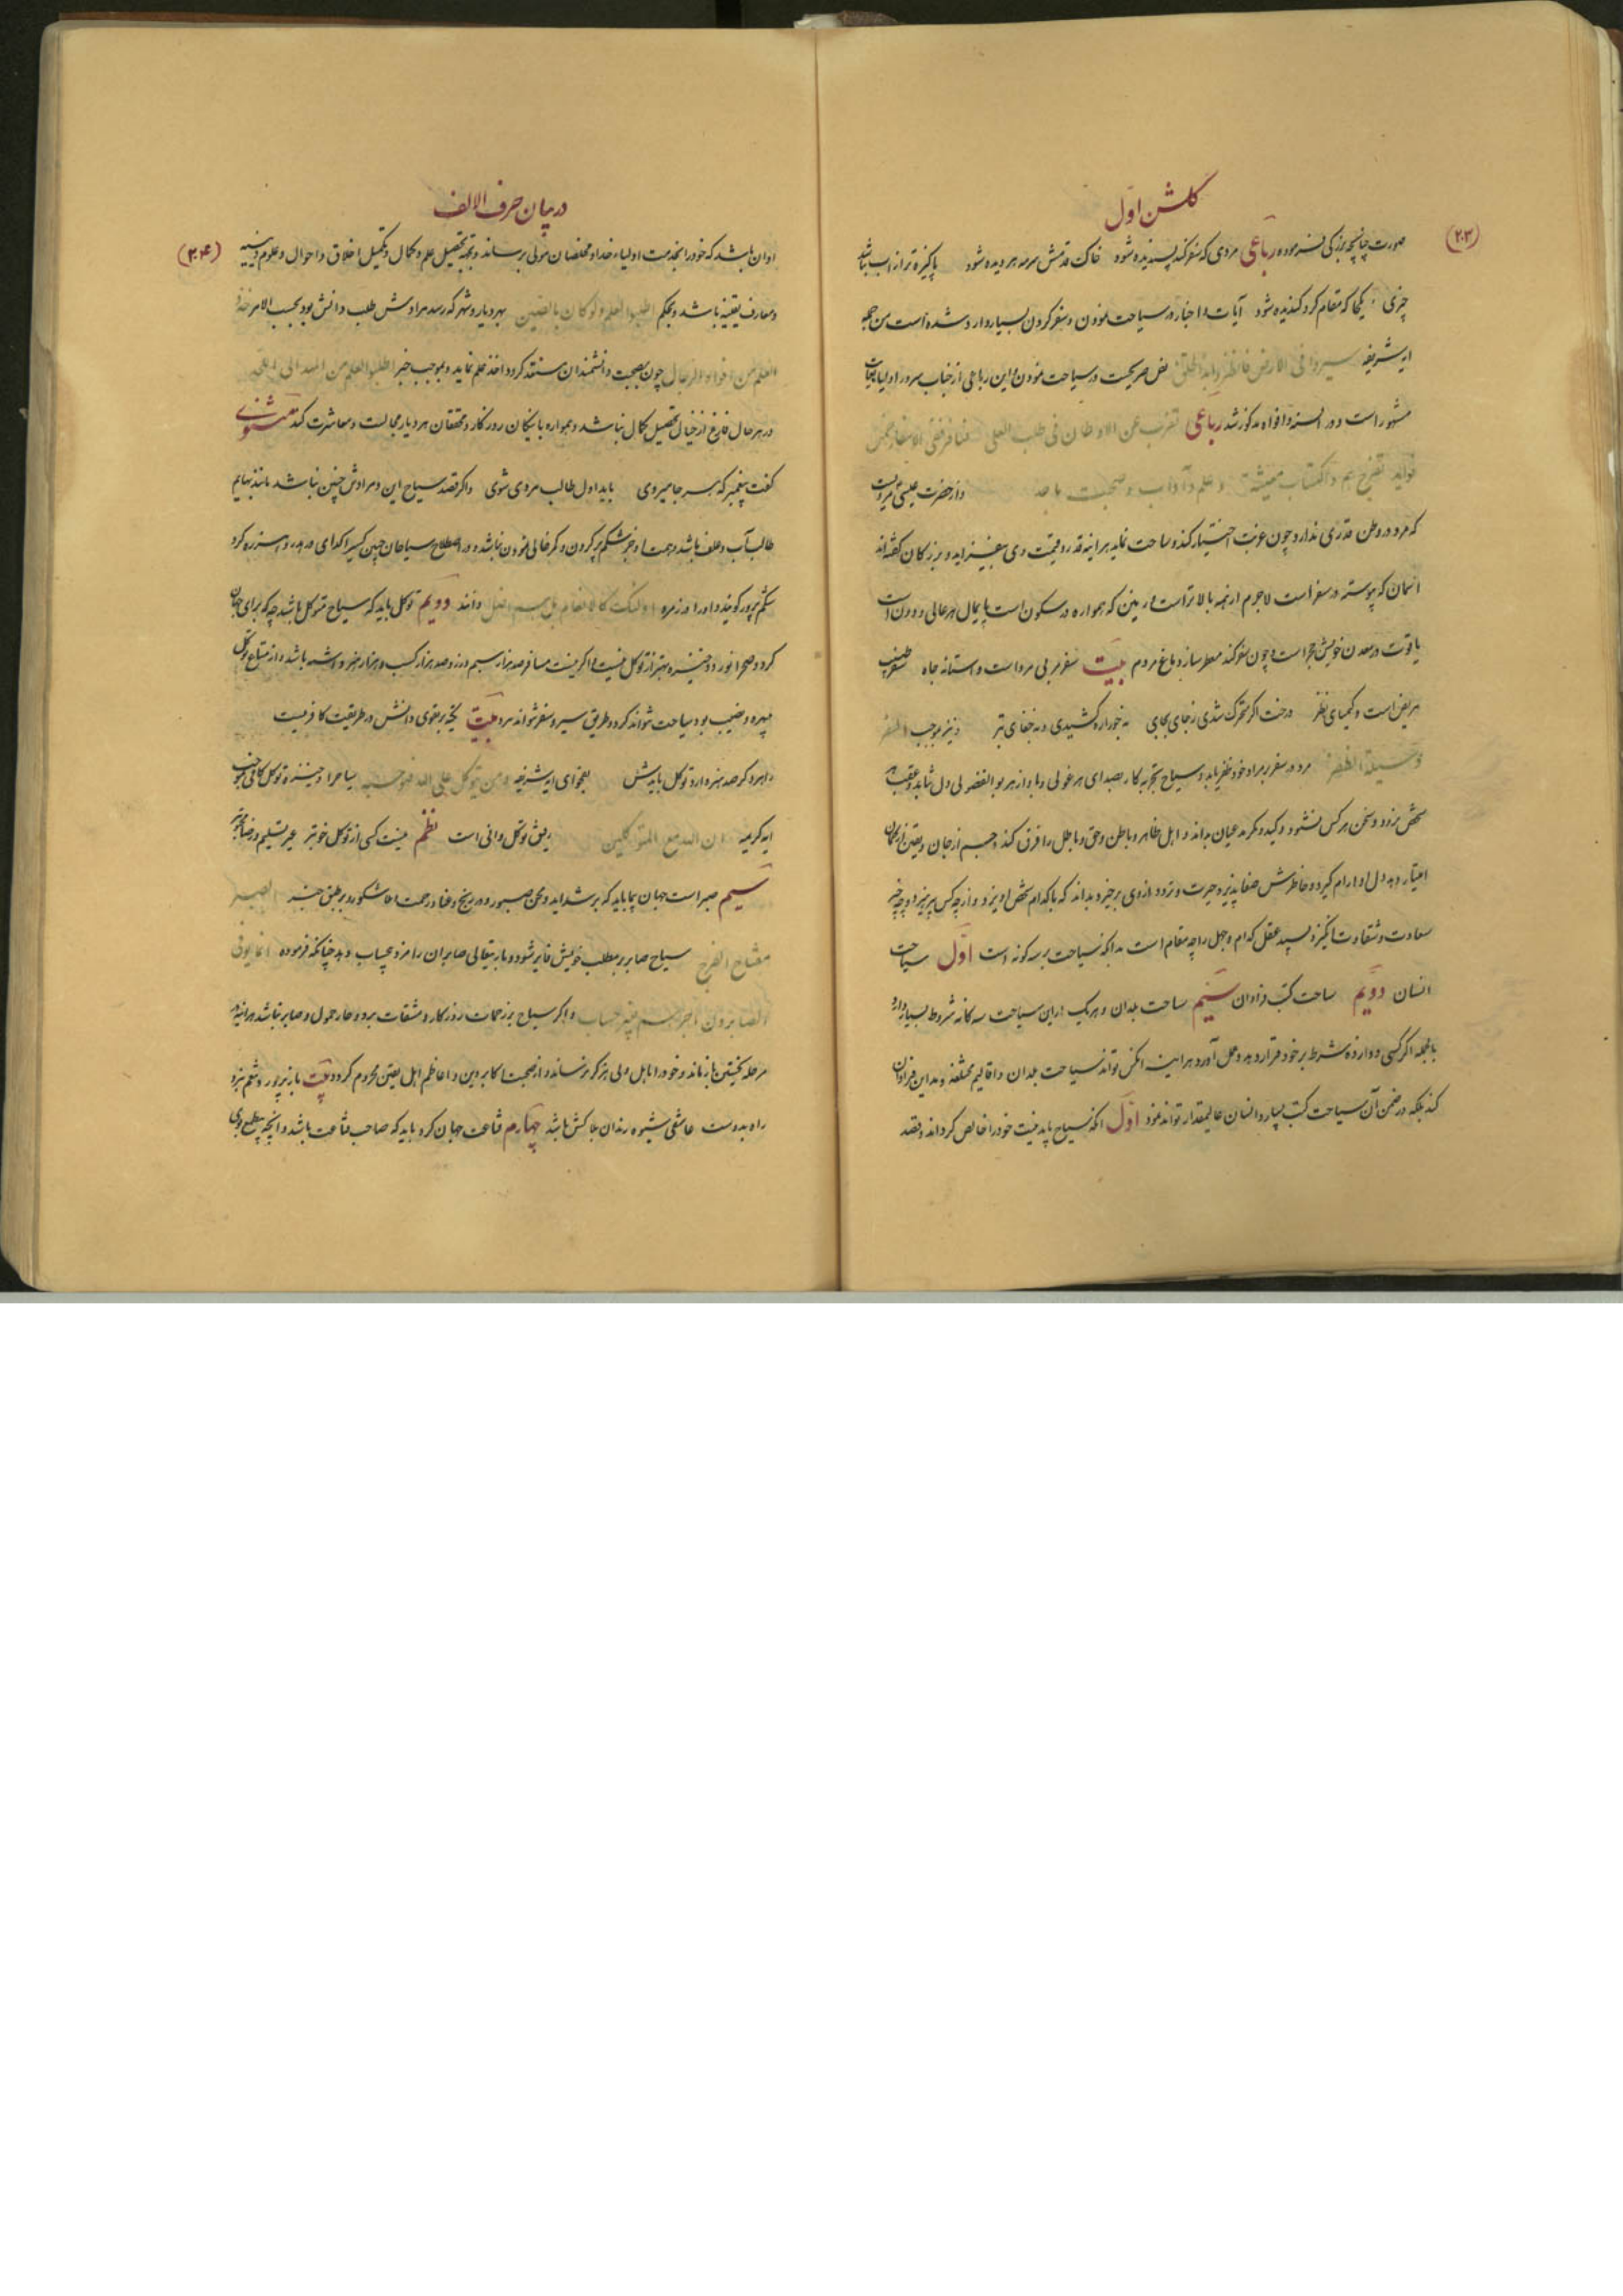 (۲۰۳)
کلشن اول
صورت چنانچه بزرکی فرموده رباعی مردی که سفر کند پسندیده شود خاک قدمش سرمه هر دیده شود پاکیزه تر از آب نباشد
چیزی یکجا که مقام کرد کندیده شود آیات و اخبار در سیاحت نمودن و سفر کردن بسیار وارد شده است من جمله
ایه شریفه سیروا فی الارض فانظروا نص صریحست در سیاحت نمودن و این رباعی از جناب سرور اولیا
مشهور است و در السنه و افواه مذکور شد رباعی تغرب عن الاوطان فی طلب العلی فسافر ففی الاسفار خمس
فواید تفرج هم و اکتساب معیشة و علم و آداب و صحبت ماجد و از حضرت عیسی مرویست
که مرد در وطن قدری ندارد چون غربت اختیار کند و سیاحت نماید هر اینه قدر و قیمت وی بیفزاید و بزرکان کفته‌اند
اسمان که پیوسته در سفر است لاجرم از همه بالاتر است و زمین که همواره در سکون است پایمال هر عالی و دون است
یاقوت در معدن خویش حجر است و چون سفر کند معطر سازد دماغ مردم بیت سفر مربی مرد است و استانه جاه سفر طبیب
مریض است و کیمیای نظر درخت اگر متحرک شدی ز جای بجای نه جور اره کشیدی و نه جفای تبر و نیز بموجب السفر
وسیلة الظفر مرد در سفر بر مراد خود ظفر یابد و سیاح تجربه کار بصدای هر غولی و باواز هر بوالفضولی دل نتابد و عقب هر
شخص نرود و سخن هر کس نشنود و کید و مکر مدعیان بداند و اهل ظاهر و باطن و حق و باطل را فرق کند و جسم از جان و یقین از کمان
امتیاز دهد دل او ارام کیرد و خاطرش صفا پذیرد و حیرت و تردد از وی برخیزد و بداند که با کدام شخص اویزد و از چه کس پرهیزد و چه چیز
سعادت و شقاوت انکیزد و بسپید عقل کدام و جهل را چه مقام است بدانکه سیاحت بر سه کونه است اول سیاحت
انسان دویم سیاحت کتب و ادوان سیم سیاحت بلدان و هر یک از این سیاحت سه کانه شروط بسیار دارد
بالجمله اگر کسی دوازده شرط بر خود قرار دهد و بعمل آورد هر اینه انکس تواند سیاحت بلدان و اقالیم مختلفه و مداین فراوان
کند بلکه در ضمن آن سیاحت کتب بسیار و انسان عالیمقدار تواند نمود اول انکه سیاح باید نیت خود را خالص کرداند و قصد
(۲۰۴)
در بیان حرف الالف
او ان باشد که خود را بخدمت اولیاء خدا و مخلصان مولی برساند و بجهة تحصیل علم و کمال و تکمیل اخلاق و احوال و علوم دینیه
و معارف یقینیه باشد و بحکم اطلبوا العلم ولو کان بالصین بهر دیار و شهر که رسد مرادش طلب دانش بود بحسب الامر خذوا
العلم من افواه الرجال چون بصحبت دانشمندان مستعد کردد اخذ علم نماید و بموجب خبر اطلبوا العلم من المهد الی اللحد
در هر حال فارغ از خیال تحصیل کمال نباشد و همواره با نیکان روزکار و محققان هر دیار مجالست و معاشرت کند مثنوی
کفت پیغمبر که بهر جا میروی باید اول طالب مردی شوی و اکر قصد سیاح این و مرادش چنین نباشد مانند بهایم
طالب آب و علف باشد و همت او جز شکم پر کردن و کمر خالی نمودن نباشد در اصطلاح سیاحان چنین کسیرا کدای دربدر و هرزه کرد
شکم پرور کویند و او را از زمره اولئک کالانعام بل هم اضل دانند دویم توکل باید که سیاح متوکل باشد چه که برای جهان
کرد و صحرا نورد چیزی بهتر از توکل نیست و اکر نیست مسافر صد هزار سیم و زر و صد هزار کسب و هزار هنر داشته باشد و از متاع توکل
بهره و نصیب بود سیاحت نتواند کرد و طریق سیر و سفر نتواند سپرد بیت تکیه بر تقوی و دانش در طریقت کافریست
راهرو کر صد هنر دارد توکل بایدش بفحوای ایه شریفه و من یتوکل علی الله فهو حسبه سیاح را جیزه توکل کافی و بموجب
ایه کریمه ان الله مع المتوکلین رفیق توکل وافی است نظم نیست کسبی از توکل خوبتر غیر تسلیم و رضا
سیم صبر است جهان پیما باید که بر شداید و محن صبور و در رنج و عنا و زحمت شکور و بر طبق خبر الصبر
مفتاح الفرج سیاح صابر و بمطلب خویش فایز شود و باریتعالی صابران را مزد بیحساب دهد چنانکه فرموده انما یوفی
الصابرون اجرهم بغیر حساب و اکر سیاح بر زحمات روزکار و مشقات برد و حار حمول و صابر نباشد هر اینه در
مرحله نخستین باز ماند و خود را باهل دلی هرکز نرساند و از صحبت اکابر دین و اعاظم اهل یقین محروم کردد بیت ناز پرورد تنعم نبرد
راه بدوست عاشقی شیوه رندان بلاکش باشد چهارم قناعت جهان کرد باید که صاحب قناعت باشد و انچه